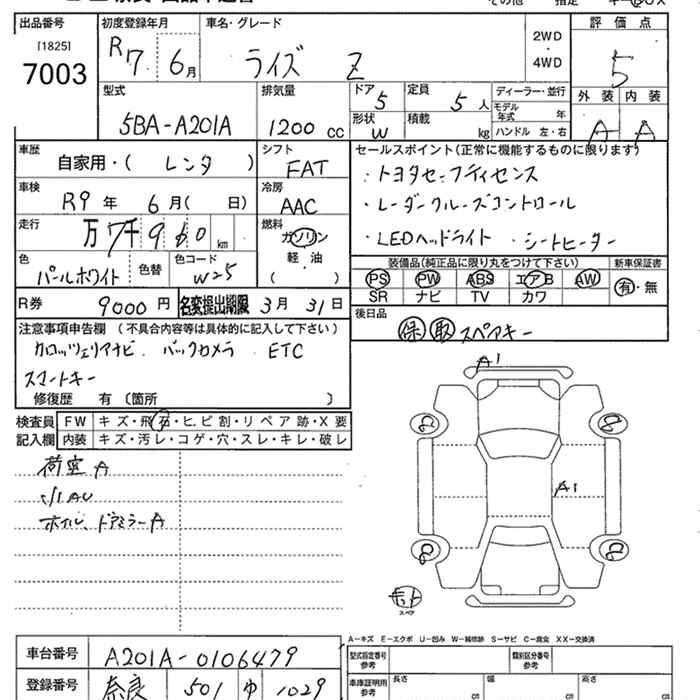 出品番号 初度登録年月 車名・グレード 2WD・4WD 評価点
[1825]
7003 R7年 6月 ライズ Z 5
型式 排気量 ドア 定員 ディーラー・並行 外装 内装
5BA-A201A 1200 cc 5 5人 モデル年式 年 A A
形状 W 積載 kg ハンドル 左・右
車歴 自家用・( レンタ ) シフト FAT
車検 R9年 6月( 日) 冷房 AAC
走行 万 7千 960 km 燃料 ガソリン 軽・油 ( )
色 パールホワイト 色替 色コード W25
セールスポイント(正常に機能するものに限ります)
・トヨタセーフティセンス
・レーダークルーズコントロール
・LEDヘッドライト ・シートヒーター
装備品(純正品に限り丸をつけて下さい) 新車保証書
PS PW ABS エアB AW 有・無
SR ナビ TV カワ
R券 9000円 名変提出期限 3月 31日
後日品 保 取 スペアキー
注意事項申告欄 (不具合内容等は具体的に記入して下さい)
カロッツェリアナビ. バックカメラ ETC
スマートキー
修復歴 有〔箇所 〕
検査員 FW キズ・飛石・ヒビ割・リペア跡・X要
記入欄 内装 キズ・汚レ・コゲ・穴・スレ・キレ・破レ
荷室A
小AU
ホイル、ドアミラーA
A1
A1
スペア
A-キズ E-エクボ U-凹み W-補修跡 S-サビ C-腐食 XX-交換済
車台番号 A201A-0106479
登録番号 奈良 501 ゆ 1029
型式指定番号 参考 類別区分番号 参考
車庫証明用 参考 長さ cm 幅 cm 高さ cm